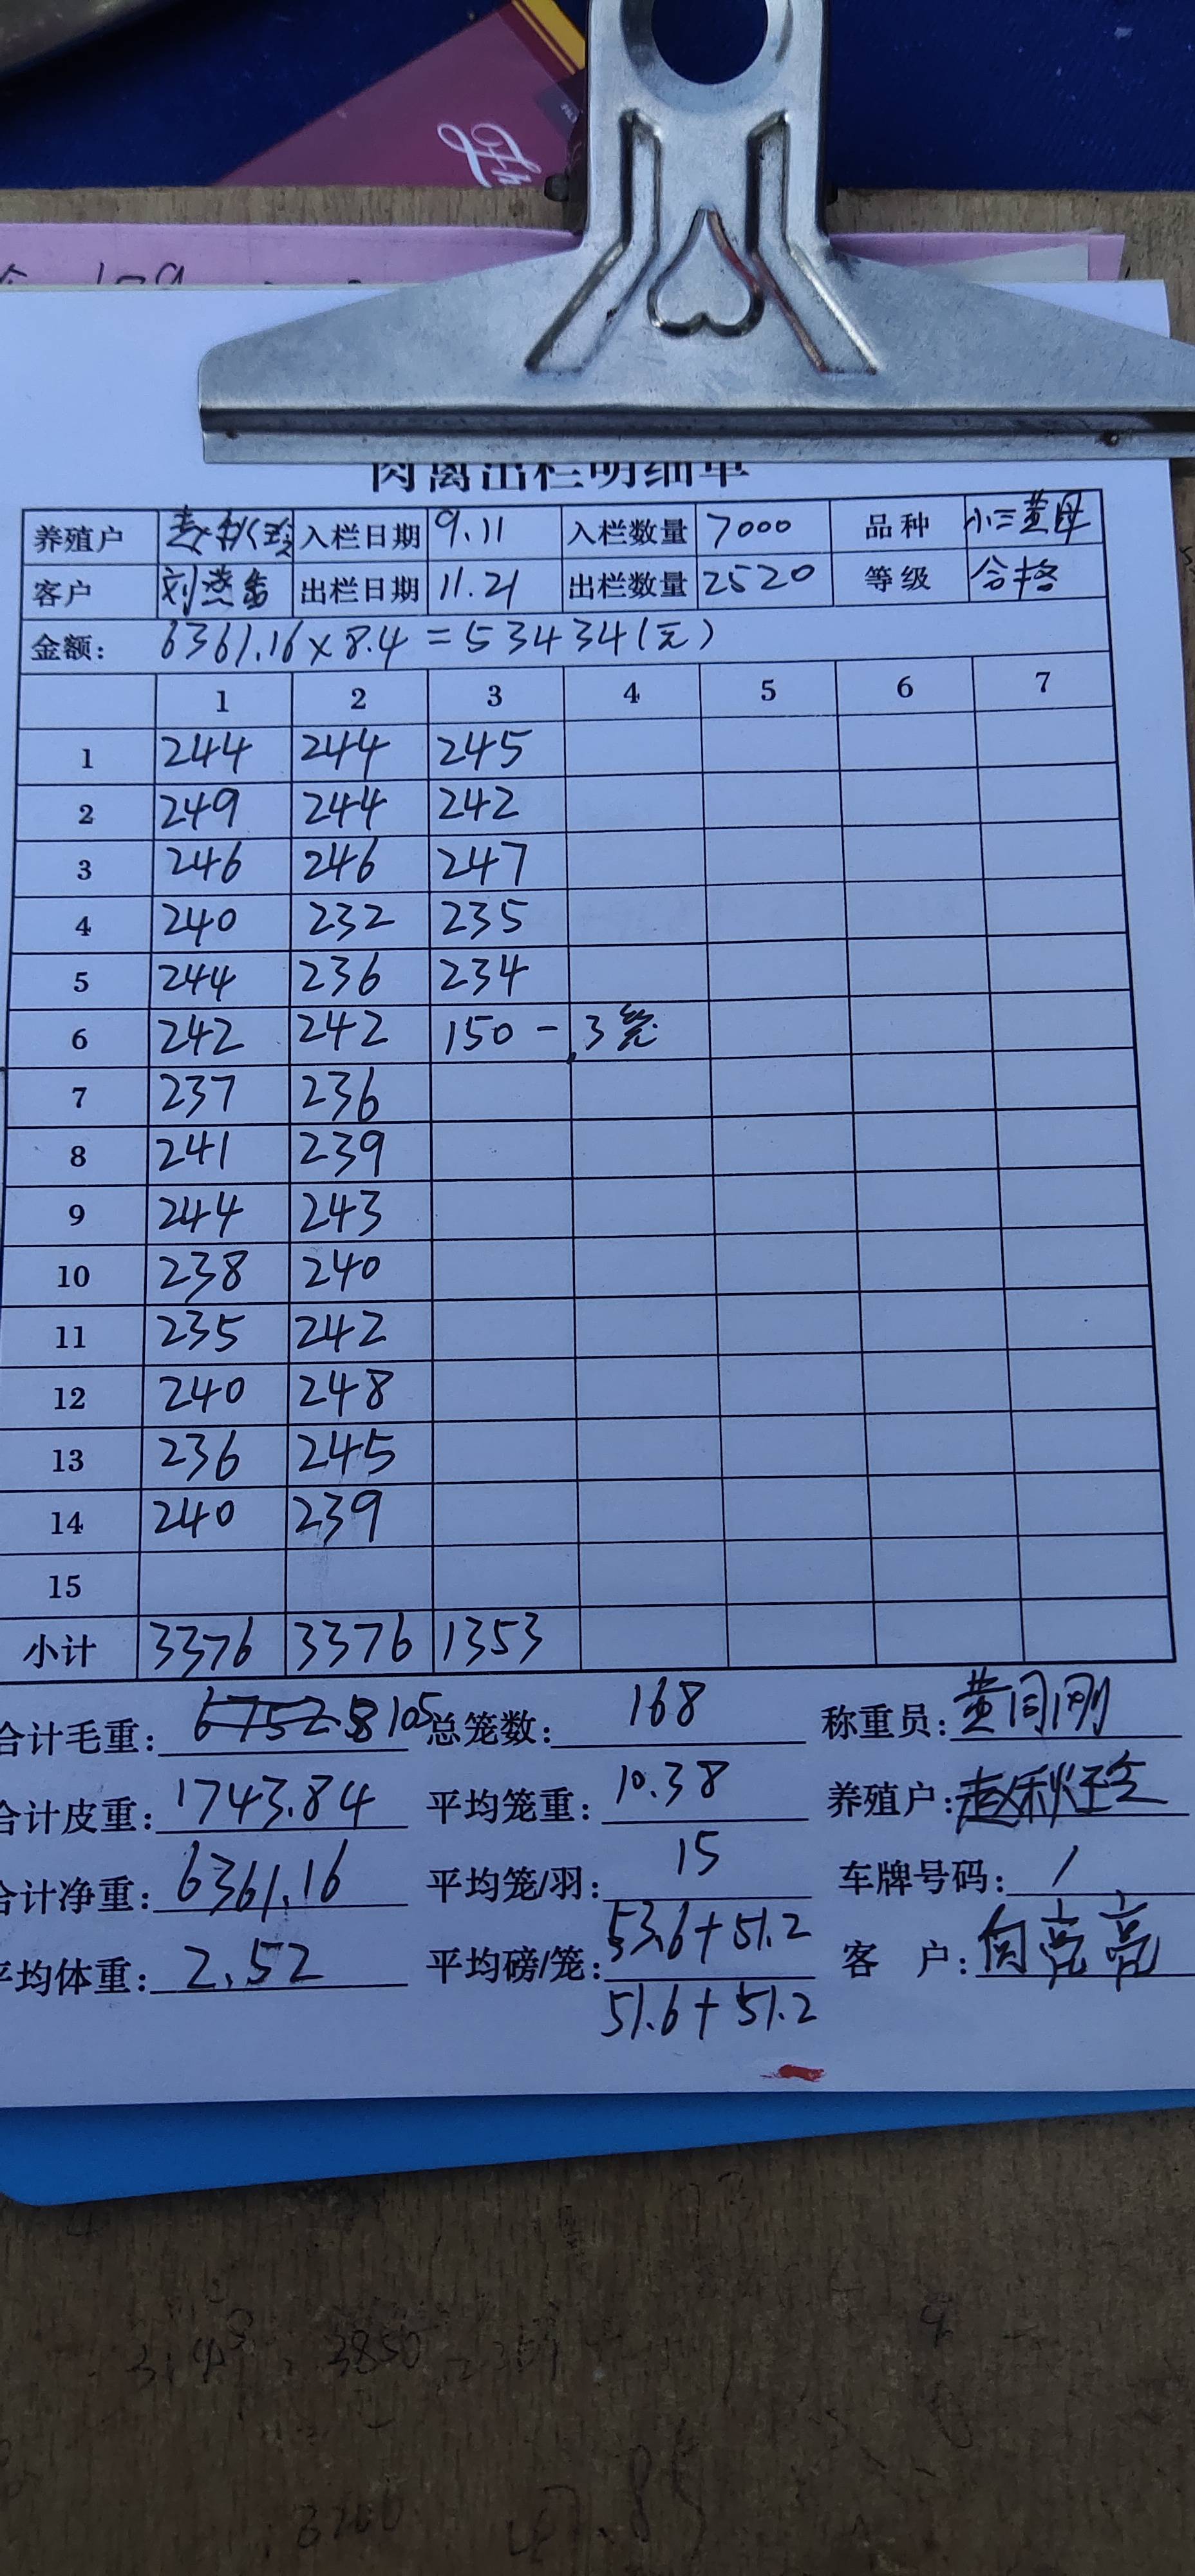 肉禽出栏明细单
养殖户 入栏日期 9.11 入栏数量 7000 品种 小三黄母
客户 出栏日期 11.21 出栏数量 2520 等级 合格
金额: 6361.16×8.4=53434(元)
1 2 3 4 5 6 7
1 244 244 245
2 249 244 242
3 246 246 247
4 240 232 235
5 244 236 234
6 242 242 150-3笼
7 237 236
8 241 239
9 244 243
10 238 240
11 235 242
12 240 248
13 236 245
14 240 239
15
小计 3376 3376 1353
合计毛重: 6752 8105 总笼数: 168 称重员: 黄同刚
合计皮重: 1743.84 平均笼重: 10.38 养殖户: 赵秋珍
合计净重: 6361.16 平均笼/羽: 15 车牌号码: /
平均体重: 2.52 平均磅/笼: 53.6+51.2 客户: 向亮亮
51.6+51.2